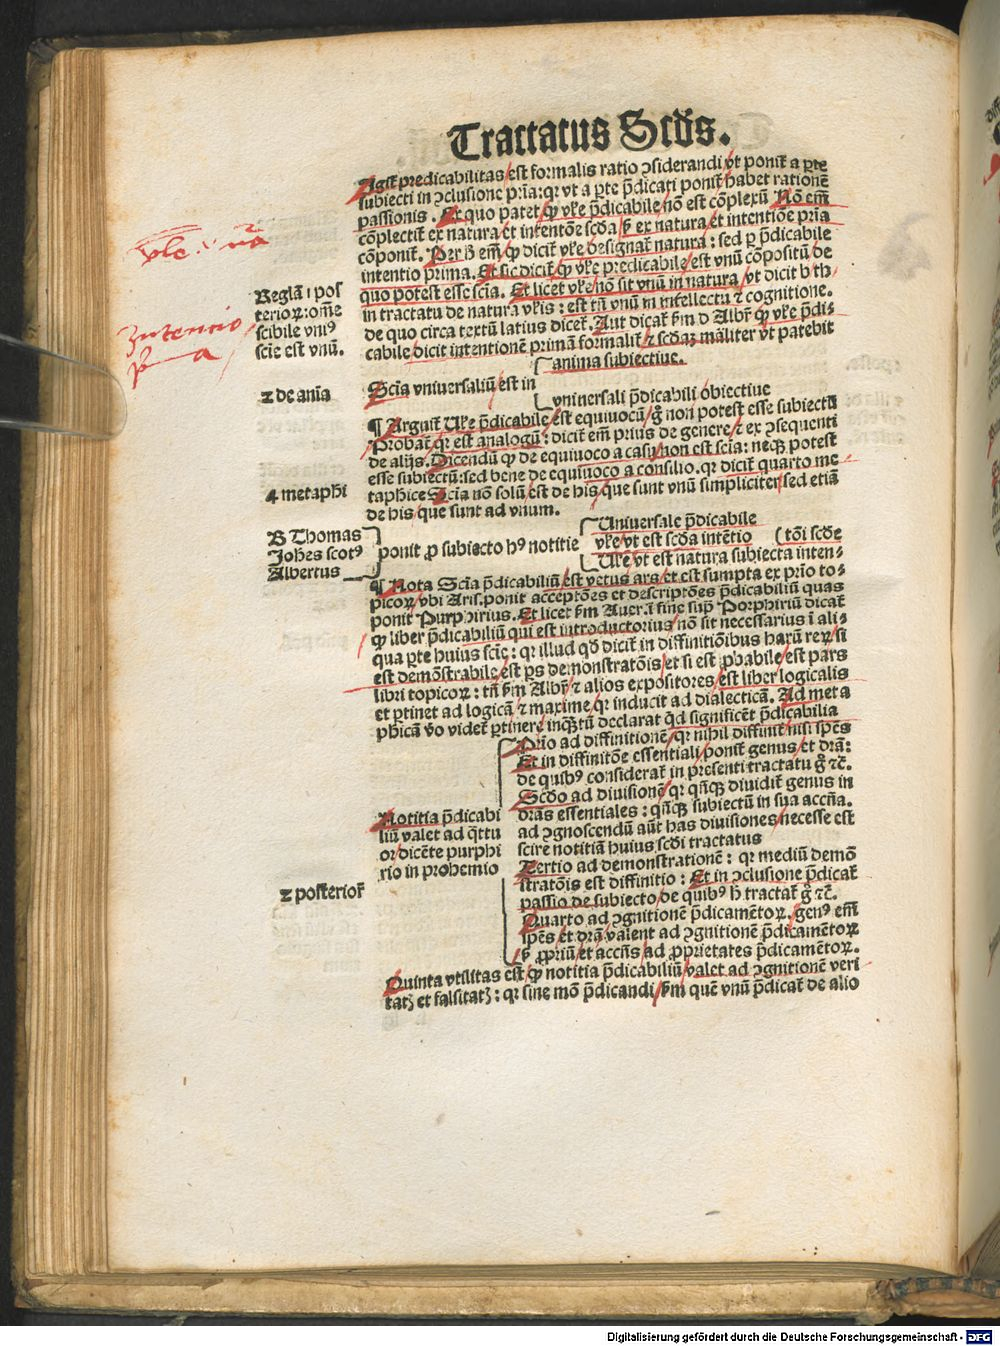 Tractatus Scďs.
Agit̃ predicabilitas est formalis ratio ɔsiderandi vt ponit̃ a p̱te
subiecti in ɔclusione pṙia: qr vt a p̱te p̃dicati ponit̃ habet rationẽ
passionis. Ex quo patet ꝙ vl̃e p̃dicabile nõ est cõplexũ Nõ em̃
cõplectit̃ ex natura et intentõe scďa sʒ ex natura et intentiõe pṙia
cõponit̃. Per h̃ em̃ ꝙ dicit̃ vl̃e designat̃ natura: sed p̱ p̃dicabile
intentio prima. Et sic dicit̃ ꝙ vl̃e predicabile est vnũ cõpositũ de
quo potest esse scĩa. Et licet vl̃e nõ sit vnũ in natura vt dicit b th
in tractatu de natura vl̃is: est tñ vnũ in intellectu ⁊ cognitione.
de quo circa textũ latius dicet̃. Aut dicat̃ ẜm d Alb̃ꝝ ꝙ vl̃e p̃di-
cabile dicit intentionẽ primã formalit̃ ⁊ scďaʒ mãliter vt patebit
Reglã i pos
terioꝝ: om̃e
scibile vniꝰ
scie est vnũ.
vl̃e: nã
Intencio
pͥa
anima subiectiue.
Scĩa vniuersaliũ est in
vniuersali p̃dicabili obiectiue
2 de anĩa
¶ Arguit̃ Vl̃e p̃dicabile est equiuocũ g̊ non potest esse subiectũ
Probat̃ qr est analogũ: dicit̃ em̃ prius de genere ⁊ ex ɔsequenti
de alijs. Dicendũ ꝙ de equiuoco a casu non est scĩa: neqʒ potest
esse subiectũ: sed bene de equiuoco a consilio. qr dicit̃ quarto me-
taphice Scĩa nõ solũ est de his que sunt vnũ simpliciter sed etiã
de his que sunt ad vnum.
4 metaphi
B Thomas
Joh̃es scotꝰ
Albertus
ponit ꝓ subiecto hꝰ notitie
Uniuersale p̃dicabile
vl̃e vt est scďa intẽtio
(tõi scďe
Vl̃e vt est natura subiecta inten-
¶ Nota Scĩa p̃dicabiliũ est vetus ars et est sumpta ex pṙio to-
picoꝝ vbi Aris. ponit acceptões et descriptões p̃dicabiliũ quas
ponit Purphirius. Et licet ẜm Auer. ĩ fine sup̱ Porphiriũ dicat̃
ꝙ liber p̃dicabiliũ qui est introductorius nõ sit necessarius ĩ ali-
qua p̱te huius scĩe: qr illud qď dicit̃ in diffinitiõibus harũ reꝝ si
est demõstrabile est p̱s demonstratõis et si est ꝓbabile est pars
libri topicoꝝ: tñ ẜm Alb̃ꝝ ⁊ alios expositores est liber logicalis
et p̱tinet ad logicã ⁊ maxime qr inducit ad dialecticã. Ad meta
phicã ṽo videt̃ p̱tinere inq̃stũ declarat qd significẽt p̃dicabilia
Notitia p̃dicabi
liũ valet ad q̃ttu
or dicẽte purphi
rio in prohemio
Pṙio ad diffinitionẽ qr nihil diffinit̃ nisi sp̃es
Et in diffinitõe essentiali ponit̃ genus et dr̃ã:
de quibꝰ considerat̃ in presenti tractatu g̊ ⁊c̃.
Scďo ad diuisionẽ qr qñqʒ diuidit̃ genus in
dr̃as essentiales: qñqʒ subiectũ in sua accñã.
ad ɔgnoscendũ aũt has diuisiones necesse est
scire notitiã huius scďi tractatus
Tertio ad demonstrationẽ: qr mediũ demõ
stratõis est diffinitio: Et in ɔclusione p̃dicat̃
passio de subiecto de quibꝰ h̃ tractat̃ g̊ ⁊c̃.
Quarto ad ɔgnitionẽ p̃dicamẽtoꝝ. genꝰ em̃
sp̃es et dr̃ã valent ad ɔgnitionẽ p̃dicamẽtoꝝ
sʒ ꝓpriũ et accñs ad ꝓprietates p̃dicamẽtoꝝ.
2 posterioꝝ
Quinta vtilitas est ꝙ notitia p̃dicabiliũ valet ad ɔgnitionẽ veri
tatʒ et falsitatʒ: qr sine mõ p̃dicandi ẜm quẽ vnũ p̃dicat̃ de alio
Digitalisierung gefördert durch die Deutsche Forschungsgemeinschaft - DFG